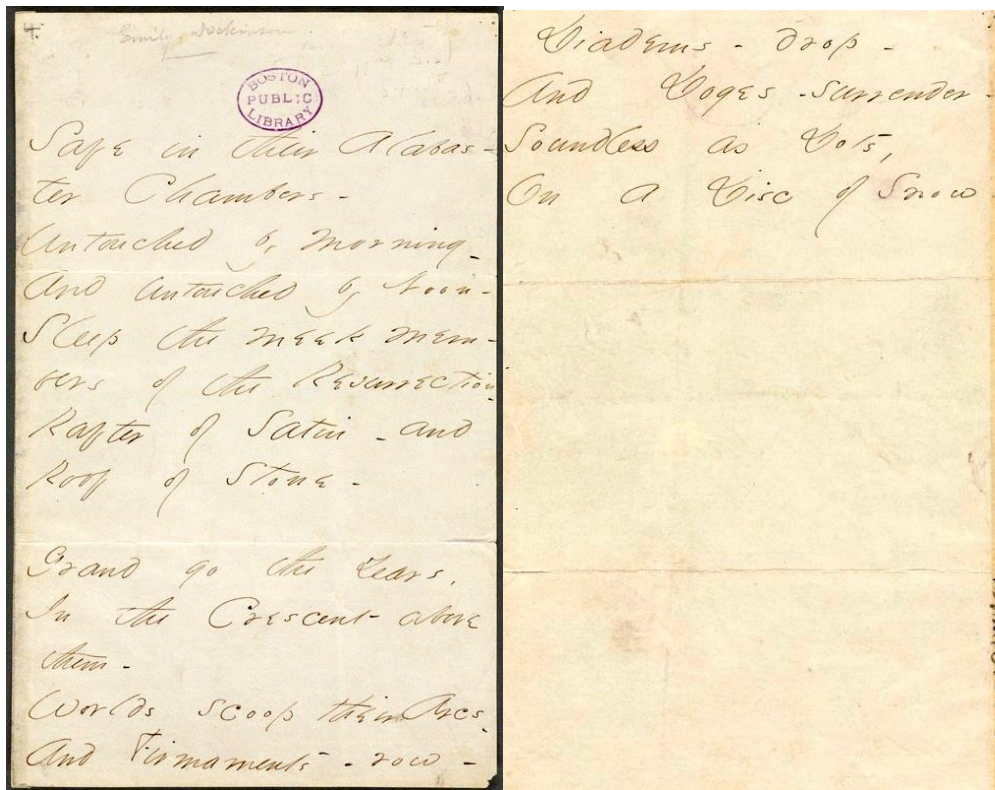 4.
Emily Dickinson
BOSTON
PUBLIC
LIBRARY
Safe in their Alabas-
ter Chambers -
Untouched by Morning -
And untouched by Noon -
Sleep the meek mem-
bers of the Resurrection -
Rafter of Satin - and
Roof of Stone -
Grand go the Years,
In the Crescent above
them -
Worlds scoop their Arcs -
And Firmaments - row -
Diadems - drop -
And Doges - surrender -
Soundless as Dots,
On a Disc of Snow